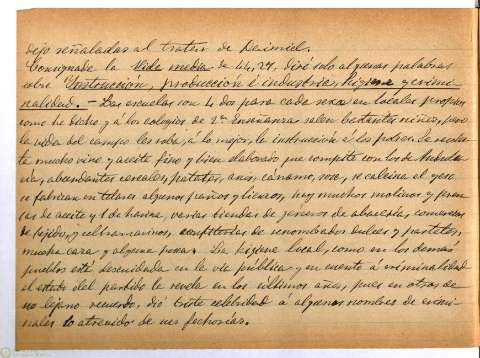 dejo señaladas al tratar de Daimiel.
Consignada la Vida media de 44,27, diré solo algunas palabras
sobre "Instrucción, producción é industria, higiene y crimi
nalidad. - Las escuelas son 4 dos para cada sexo en locales propios
como he dicho y á los colegios de 2ª Enseñanza salen bastantes niños, pero
la vida del campo les roba, á lo mejor, la instrucción á los pobres. Se cosecha
mucho vino y aceite fino y bien elaborado que compite con los de
abundantes cereales, patatas, anis, cáñamo, se calcina el yeso,
se fabrican en telares algunos paños y lienzos, hay muchos molinos y pren
sas de aceite y 1 de harina, varias tiendas de generos de abaceria, comercios
de tejidos, y ultramarinos, confiterias de renombrados dulces y pasteles,
mucha caza y alguna pesca. - La higiene local, como en los demás
pueblos está descuidada en la vía pública y en cuento á criminalidad
el estado del partido lo revela en los últimos años, pues en otros, de
no lejano recuerdo, dió triste celebridad á algunos nombres de crimi
nales lo atrevido de sus fechorías.